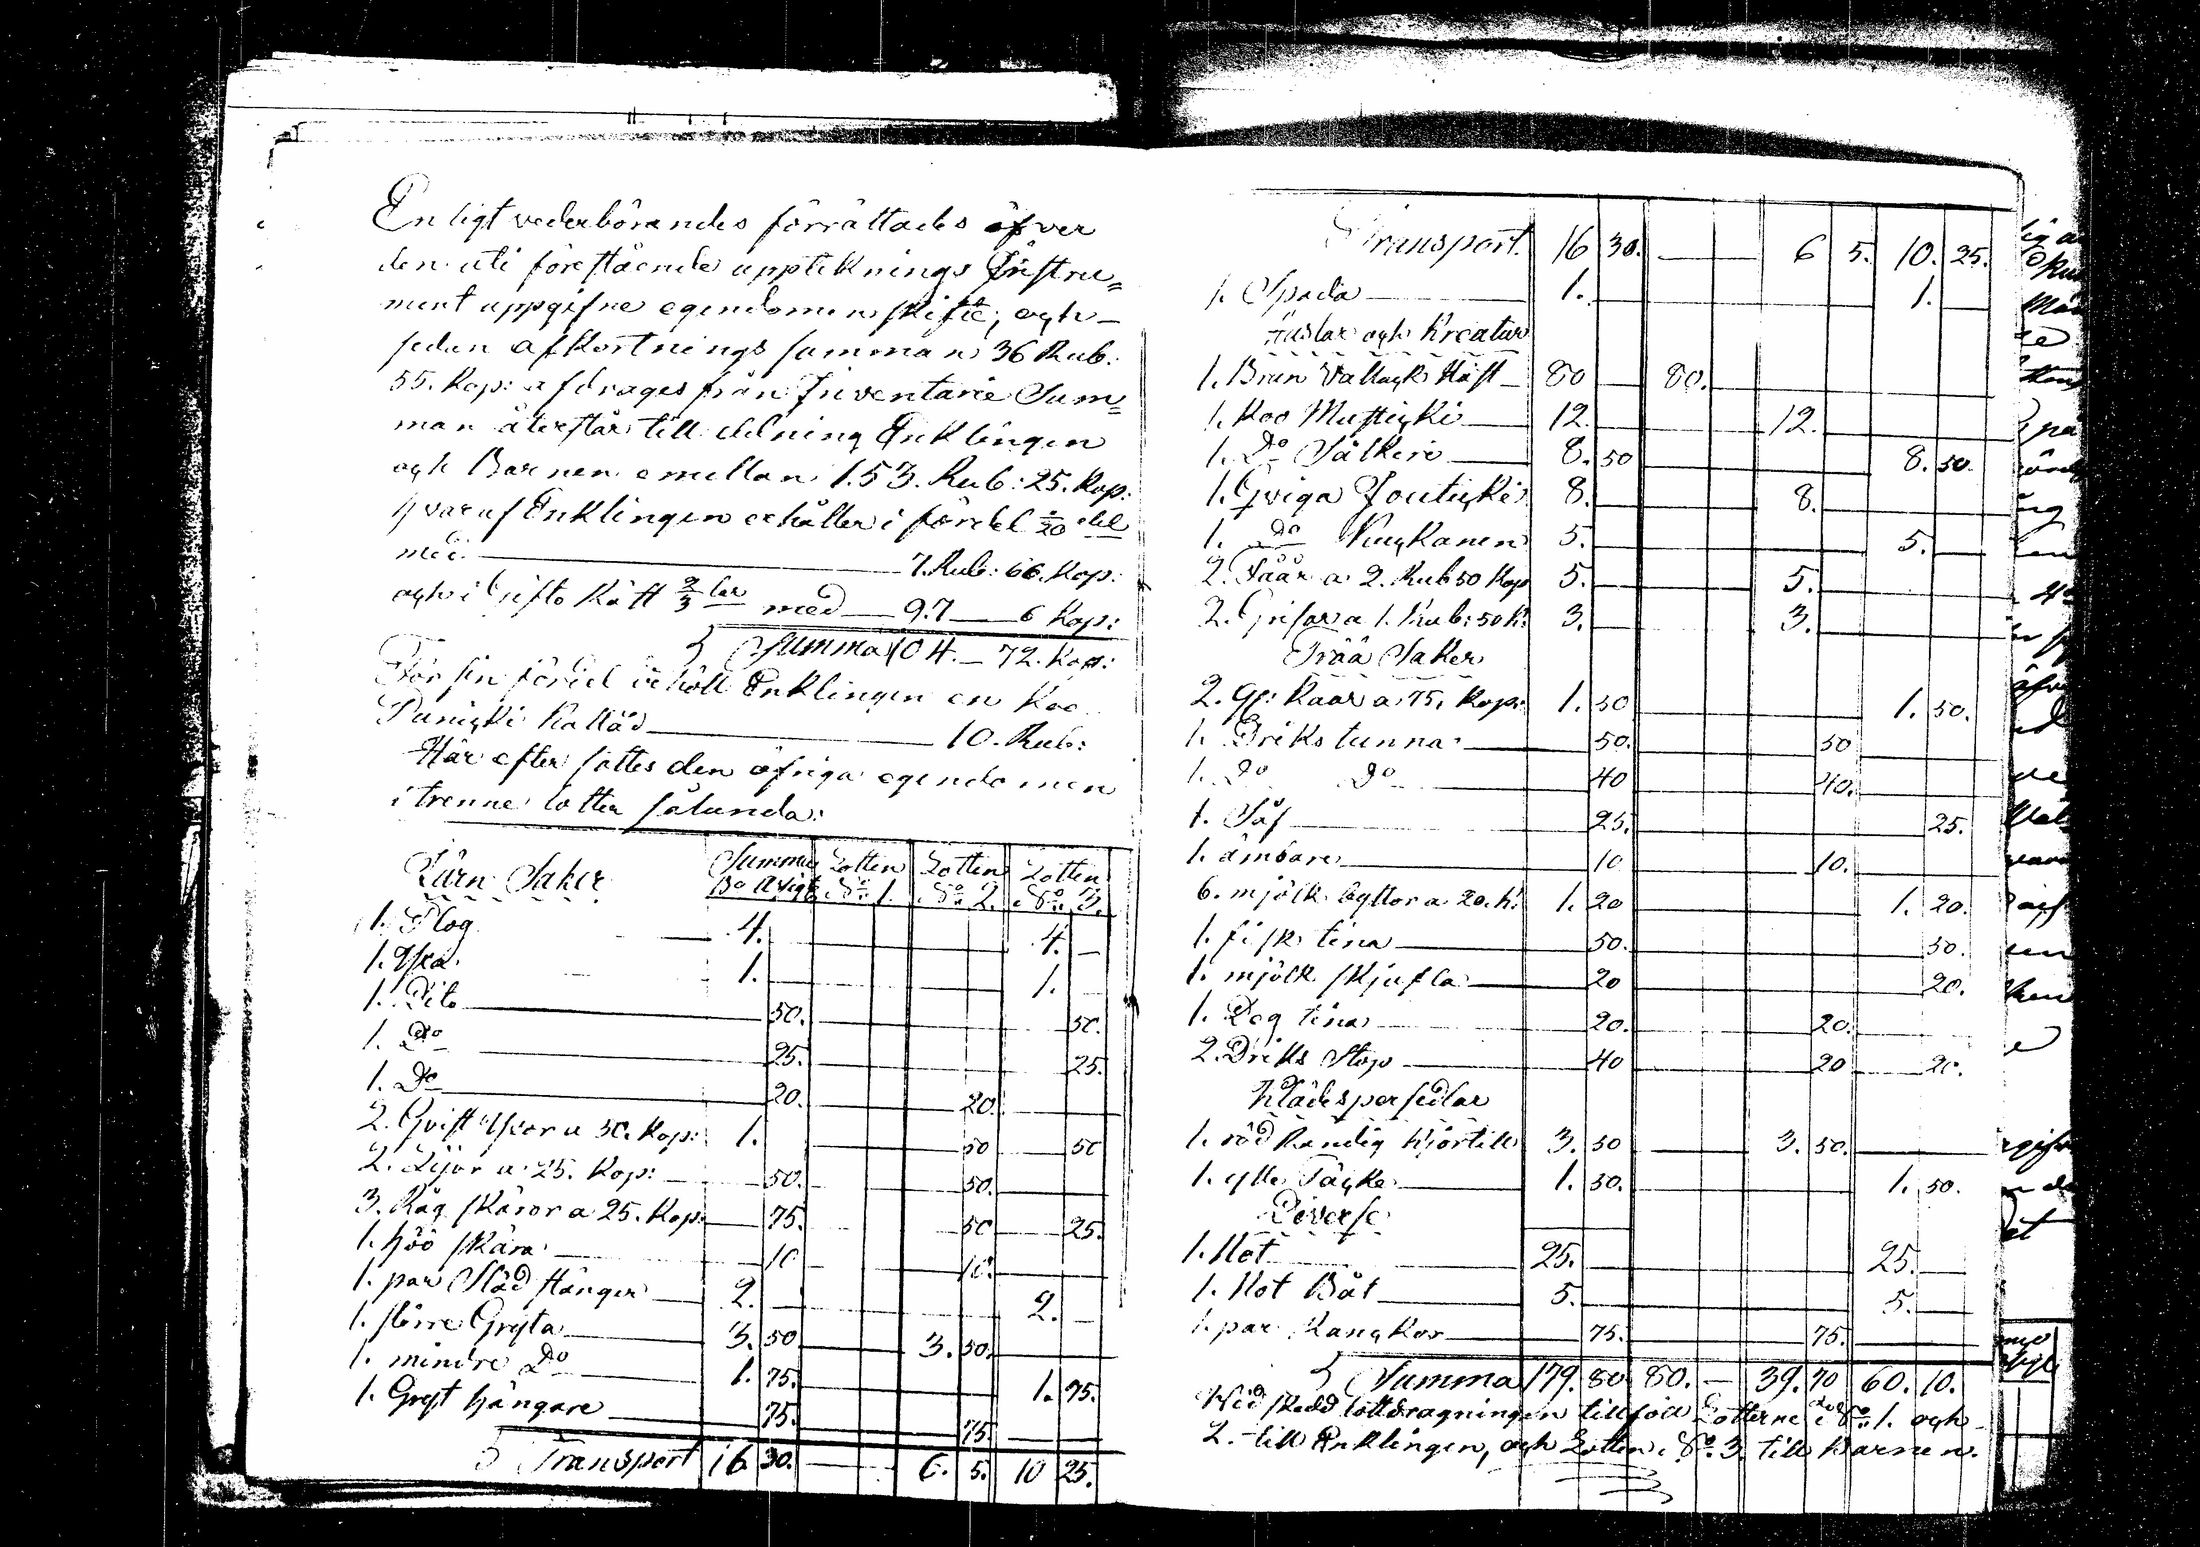 Enligt vederbörandes förrättades öfver
den uti förestående uppteknings Instru=
ment uppgifne egendomen skifte, och
sedan afkortnings summan 36 Rub:
55. Kop: afdrages från Inventarie Sum=
man återstår till delning Enklingen
och Barnen emellan 153. Rub: 25. Kop:
hvaraf Enklingen erhåller i fördel 1/20 del
med 7. Rub: 66. Kop:
och i Gifto Rätt 2/3 lar med 97 6 Kop:
Summa 104. 72. Kop:
För sin fördel behöll Enklingen en Koo
Punicki kallad 10. Rub:
Här efter sattes den öfriga egendomen
i trenne lotter sålunda:
Järn Saker Summa Lotten No 1. Lotten No 2. Lotten No 3.
1. Plog 4. 4.
1. Yxa 1. 1.
1. Dito 50. 50.
1. Do 25. 25.
1. Do 20. 20.
2. Qvist Yxor a 50. Kop: 1. 50 50
2. Lijor a 25. Kop: 50. 50.
3. Råg skäror a 25. Kop: 75. 50 25.
1. höö skära 10 10.
1. par Släd stänger 2. 2.
1. större Gryta 3. 50 3. 50.
1. mindre Do 1. 75. 1. 75.
1. Gryt hängare 75. 75.
Transport 16 30. 6. 5. 10 25.
Transport 16 30. 6 5. 10. 25.
1. Spada 1. 1.
Hästar och Kreatur
1. Brun Vallack Häst 80 80.
1. Koo Musticki 12. 12.
1. Do 8. 50 8. 50.
1. Qviga Jouticki 8. 8.
1. Do 5. 5.
2. Fåår a 2. Rub 50 Kop 5. 5.
2. Grisar a 1. Rub: 50 K: 3. 3.
Trää Saker
2. Kaar a 75. Kop: 1. 50 1. 50.
1. Driks tunna 50. 50
1. Do Do 40 40.
1. Såf 25. 25.
1. ämbare 10 10.
6. mjölk byttor a 20. K: 1. 20 1. 20.
1. fisk tina 50. 50.
1. mjölk skjufla 20 20.
1. Deg tina 20. 20.
2. Driks Stop 40 20 20.
Klädespersedlar
1. röd Randig Kjortell 3. 50 3. 50.
1. ylle Täcke 1. 50. 1. 50.
Diverse
1. Not 25. 25.
1. Not Båt 5. 5.
1. par Kanckor 75. 75.
Summa 179. 80 80. 39. 70 60. 10.
Wid skedd lottdragningen tillföll Lotterne No 1. och
2. till Enklingen, och Lotten No 3. till Barnen.